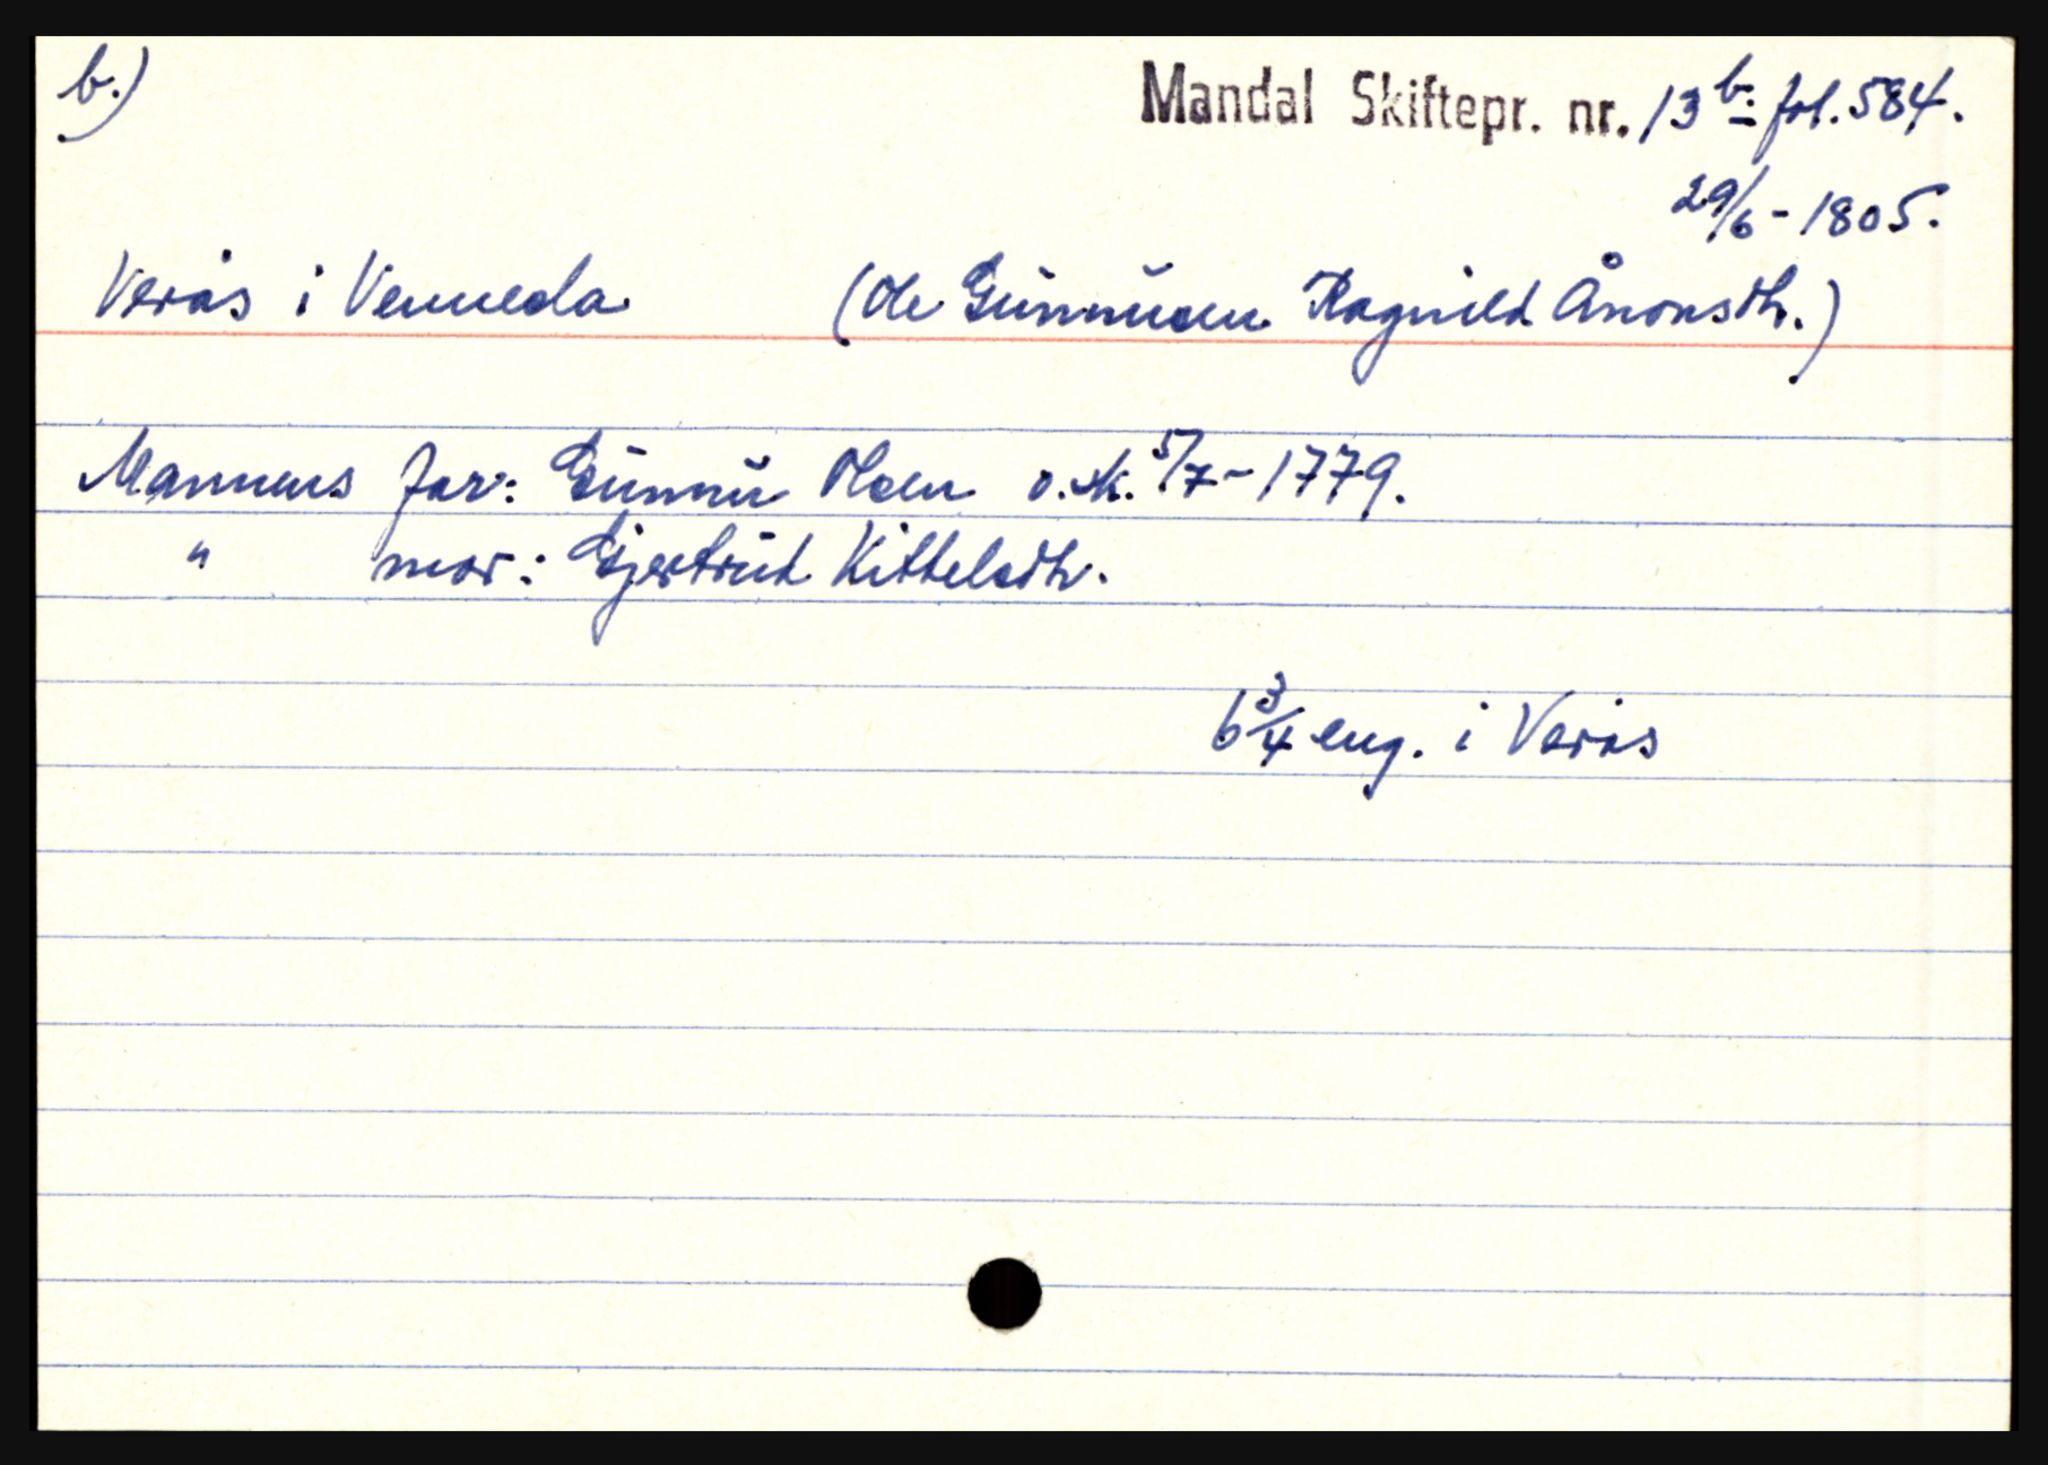 b.)
Mandal Skiftepr. nr. 13 b: fol. 584.
29/6 - 1805.
Verås i Venneola (Ole Gunnusen Ragnild Ånonsdtr.)
Mannens far: Gunnu Olsen o.sk. 5/7 - 1779.
" mor: Gjertrud Kittelsdtr.
6 3/4 eng. i Verås